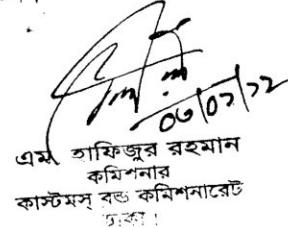 ০৬/০২/২২
এম হাফিজুর রহমান
কমিশনার
কাস্টমস্ বন্ড কমিশনারেট
ঢাকা।